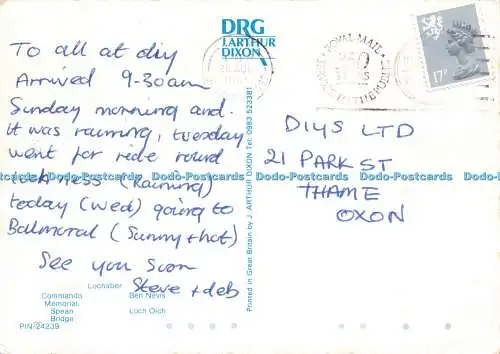 DRG
J.ARTHUR
DIXON
To all at diy
Arrived 9-30am
Sunday morning and
it was raining, tuesday
went for ride round
loch ness (Raining)
today (wed) going to
Balmoral (Sunny + hot)
See you soon
Steve + deb
Lochaber
Commando
Memorial,
Spean
Bridge
Ben Nevis
Loch Oich
PIN-24239
Printed in Great Britain by J. ARTHUR DIXON Tel: 0983 523381
ROYAL MAIL
17P
DIYS LTD
21 PARK ST
THAME
OXON
Dodo-Postcards Dodo-Postcards Dodo-Postcards Dodo-Postcards Dodo-Postcards